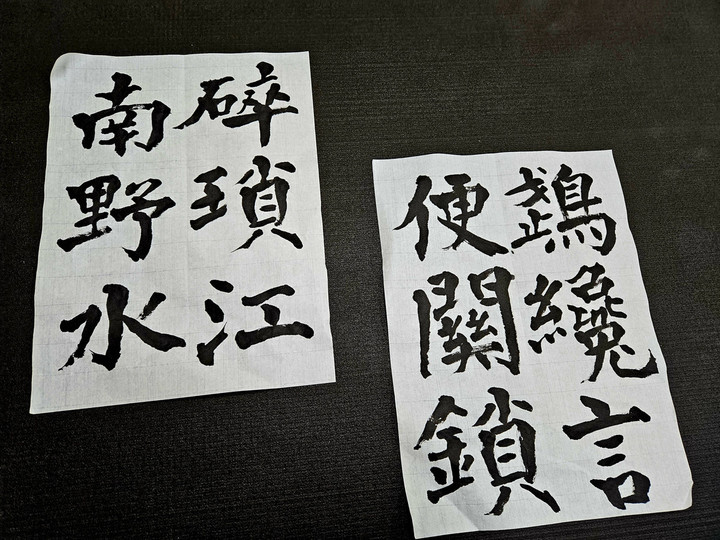 鵡纔言
便關鎖
碎瑣江
南野水